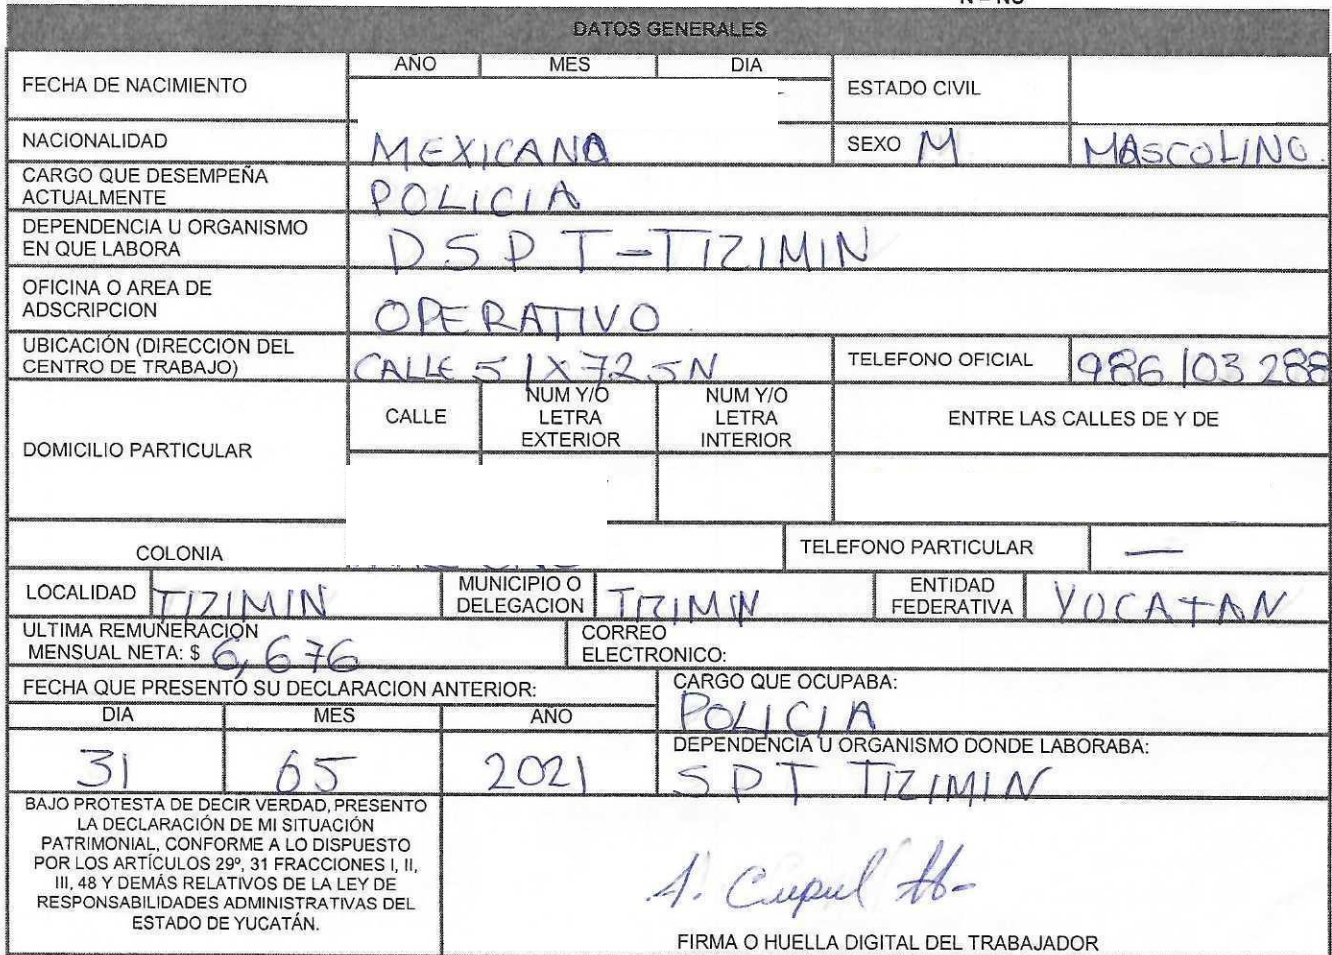 DATOS GENERALES
FECHA DE NACIMIENTO
AÑO MES DIA
ESTADO CIVIL
NACIONALIDAD MEXICANA SEXO M MASCOLINO.
CARGO QUE DESEMPEÑA
ACTUALMENTE POLICIA
DEPENDENCIA U ORGANISMO
EN QUE LABORA DSPT-TIZIMIN
OFICINA O AREA DE
ADSCRIPCION OPERATIVO.
UBICACIÓN (DIRECCION DEL
CENTRO DE TRABAJO) CALLE 51X72 SN TELEFONO OFICIAL 986 103 288
DOMICILIO PARTICULAR
CALLE
NUM Y/O
LETRA
EXTERIOR
NUM Y/O
LETRA
INTERIOR
ENTRE LAS CALLES DE Y DE
COLONIA TELEFONO PARTICULAR —
LOCALIDAD TIZIMIN
MUNICIPIO O
DELEGACION TIZIMIN
ENTIDAD
FEDERATIVA YUCATAN
ULTIMA REMUNERACIÓN
MENSUAL NETA: $ 6,676
CORREO
ELECTRONICO:
FECHA QUE PRESENTÓ SU DECLARACION ANTERIOR:
DIA MES AÑO
31 05 2021
CARGO QUE OCUPABA:
POLICIA
DEPENDENCIA U ORGANISMO DONDE LABORABA:
SPT TIZIMIN
BAJO PROTESTA DE DECIR VERDAD, PRESENTO
LA DECLARACIÓN DE MI SITUACIÓN
PATRIMONIAL, CONFORME A LO DISPUESTO
POR LOS ARTÍCULOS 29º, 31 FRACCIONES I, II,
III, 48 Y DEMÁS RELATIVOS DE LA LEY DE
RESPONSABILIDADES ADMINISTRATIVAS DEL
ESTADO DE YUCATÁN.
FIRMA O HUELLA DIGITAL DEL TRABAJADOR